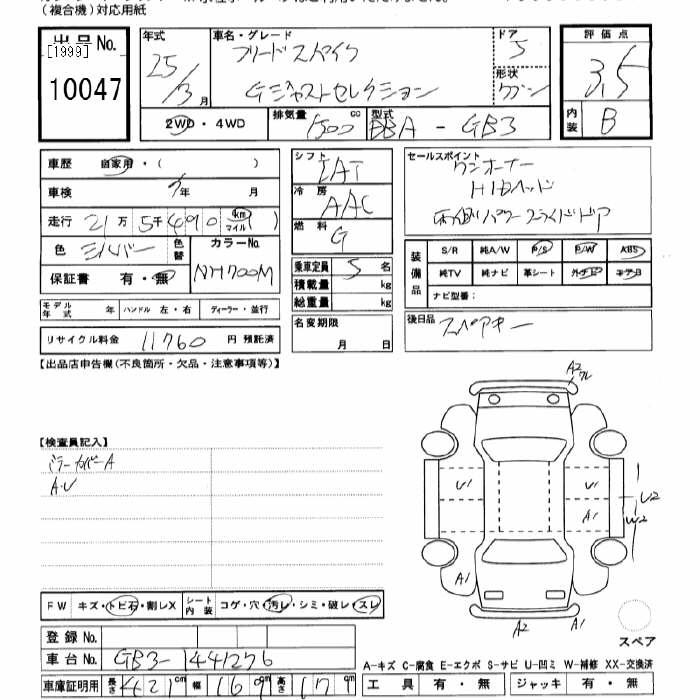 (複合機)対応用紙
出品No.
[1999]
10047
年式
25/3月
車名・グレード
フリードスパイク
Gジャストセレクション
ドア
5
形状
ワゴン
評価点
3.5
内装
B
2WD・4WD
排気量
1500cc
型式
DBA-GB3
車歴 自家用・( )
車検 年 月
走行 21万5千490 km マイル
色 シルバー 色替
カラーNo.
NH700M
保証書 有・無
モデル年式 年 ハンドル 左・右 ディーラー・並行
リサイクル料金 11760 円 預託済
シフト
IAT
冷房
AAC
燃料
G
乗車定員 5 名
積載量 kg
総重量 kg
名変期限
月 日
セールスポイント
ワンオーナー
HIDヘッド
両側パワースライドドア
装備品
S/R 純A/W P/S P/W ABS
純TV 純ナビ 革シート 外ナビ エアB
ナビ型番:
後日品
スペアキー
【出品店申告欄(不良箇所・欠品・注意事項等)】
【検査員記入】
ミラーカバーA
A・U
A2
ワレ
U1
U1
A1
U2
W2
A1
A2
A1
スペア
FW キズ・トビ石・割レX
シート内装 コゲ・穴・汚レ・シミ・破レ・スレ
登録No.
車台No. GB3-1441276
車庫証明用 長さ 421cm 幅 169cm 高さ 171cm
A-キズ C-腐食 E-エクボ S-サビ U-凹ミ W-補修 XX-交換済
工具 有・無 ジャッキ 有・無